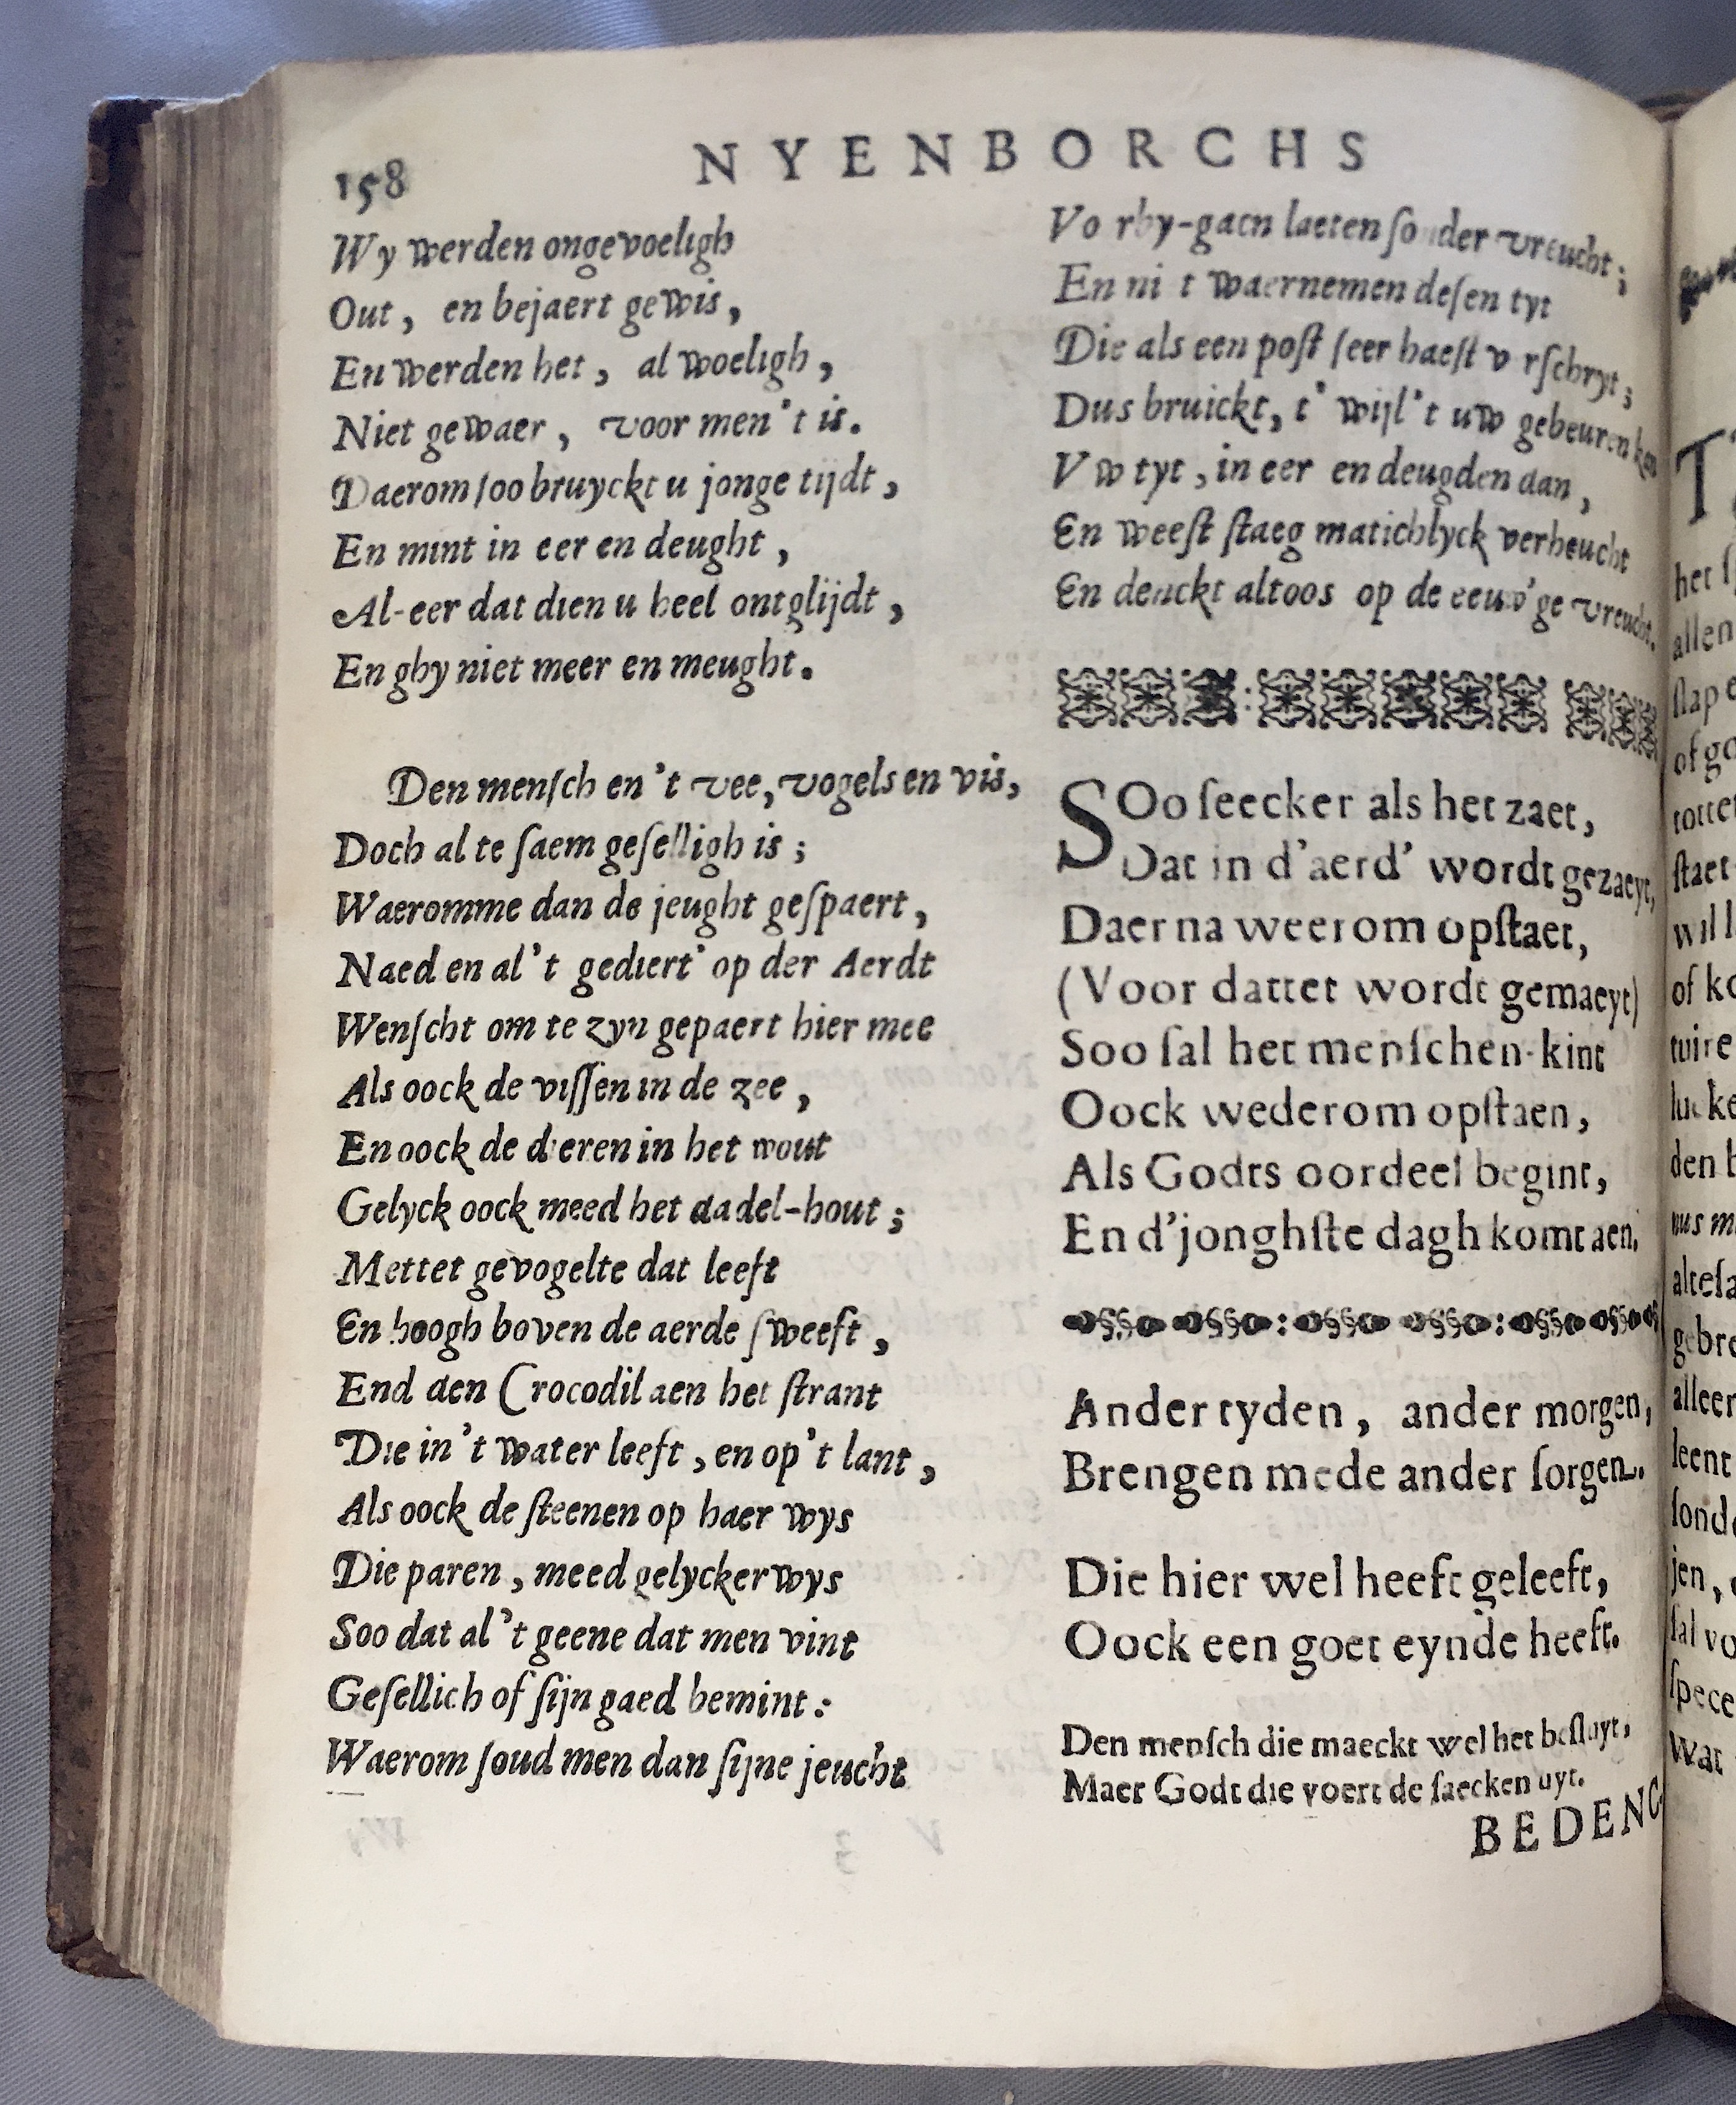 158
NYENBORCHS
Wy werden ongevoeligh
Out, en bejaert gewis,
En werden het, al woeligh,
Niet gewaer, voor men't is.
Daerom ſoo bruyckt u jonge tijdt,
En mint in eer en deught,
Al-eer dat dien u heel ontglijdt,
En ghy niet meer en meught.
Den menſch en't vee, vogels en vis,
Doch al te ſaem geſelligh is;
Waeromme dan de jeught geſpaert,
Naed en al't gediert' op der Aerdt
Wenſcht om te zyn gepaert hier mee
Als oock de viſſen in de zee,
En oock de dieren in het wout
Gelyck oock meed het dadel-hout;
Mettet gevogelte dat leeft
En hoogh boven de aerde ſweeft,
End den Crocodil aen het ſtrant
Die in't water leeft, en op't lant,
Als oock de ſteenen op haer wys
Die paren, meed gelyckerwys
Soo dat al't geene dat men vint
Geſellich of ſijn gaed bemint:
Waerom ſoud men dan ſijne jeucht
Vo rby-gaen laeten ſonder vreucht;
En ni t waernemen deſen tyt
Die als een poſt ſeer haeſt v rſchryt;
Dus bruickt, t' wijl't uw gebeuren kan
Vw tyt, in eer en deugden dan,
En weeſt ſtaeg matichlyck verheucht
En denckt altoos op de eeuw'ge vreucht.
SOo ſeecker als het zaet,
Dat in d'aerd' wordt gezaeyt,
Daer na weerom opſtaet,
(Voor dattet wordt gemaeyt)
Soo ſal het menſchen-kint
Oock wederom opſtaen,
Als Godts oordeel begint,
En d'jonghſte dagh komt aen.
Ander tyden, ander morgen,
Brengen mede ander ſorgen.
Die hier wel heeft geleeft,
Oock een goet eynde heeft.
Den menſch die maeckt wel het beſluyt,
Maer Godt die voert de ſaecken uyt.
BEDENC
het
allen
ſlap
of
ſtaet
wil
of
den